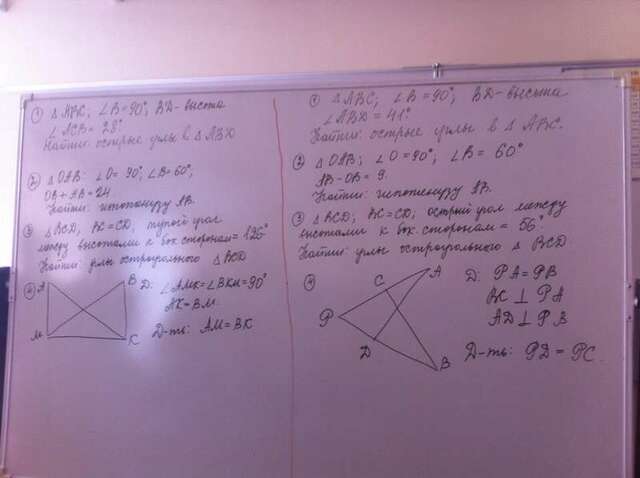 ① △ABC; ∠B=90°; BD-высота
∠ACB= 28°
Найти: острые углы в △ABD
2. △OAB: ∠O= 90°; ∠B=60°;
OB+AB=24
Найти: гипотенузу AB.
③ △BCD, BC=CD, тупой угол
между высотами к бок. сторонам= 126°
Найти: углы остроугольного △BCD
④ A B Д: ∠AMK=∠BKM=90°
AK=BM.
Д-ть: AM=BK
M K
① △ABC; ∠B=90°; BD-высота
∠ABD=41°
Найти: острые углы в △ABC.
② △OAB; ∠O=90°; ∠B= 60°
AB-OB= 9.
Найти: гипотенузу AB.
③ △BCD; BC=CD, острый угол между
высотами к бок. сторонам= 56°.
Найти: углы остроугольного △ BCD
④ C A Д: PA=PB
BC ⊥ PA
P AD ⊥ PB
D B Д-ть: PD = PC.